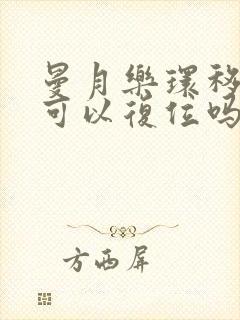 曼月樂環移
可以復位嗎
方西屏